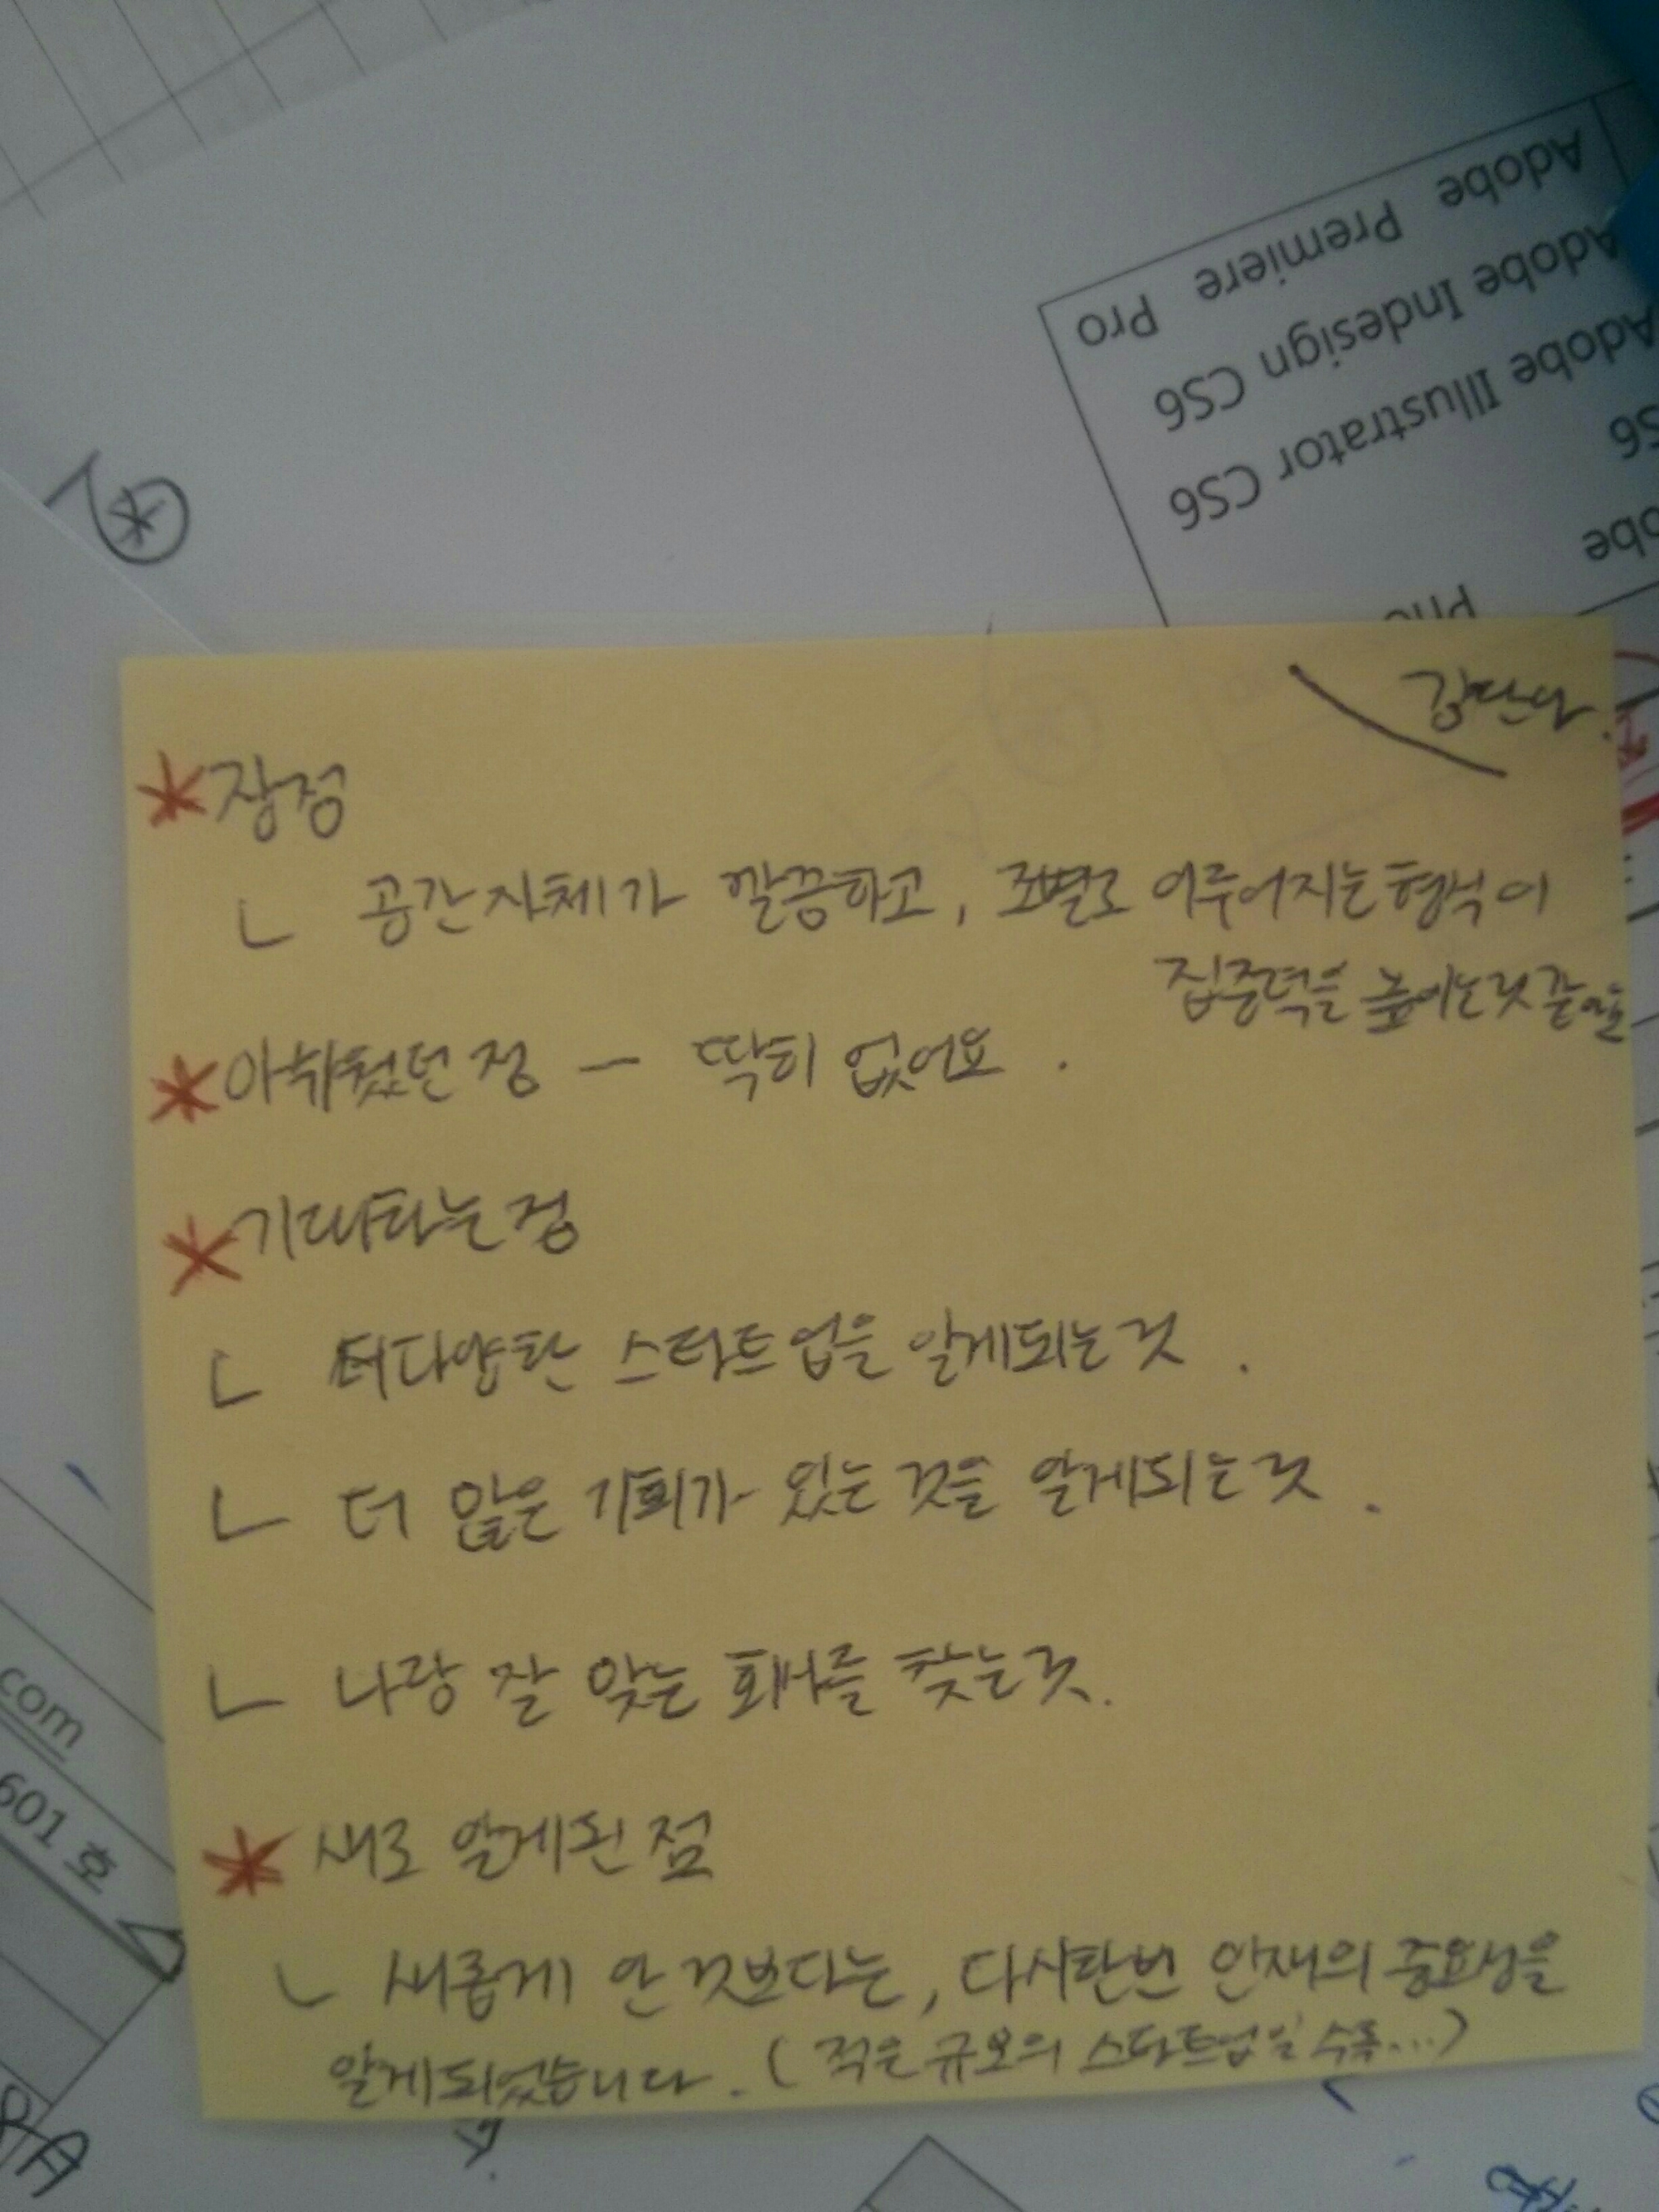 Adobe Premiere Pro
Adobe Indesign CS6
Adobe Illustrator CS6
S6
강단아.
*장점
ㄴ 공간자체가 깔끔하고, 조별로 이루어지는 형식이
집중력을 높이는것 같아요
*아쉬웠던 점 - 딱히 없어요.
*기대하는 점
ㄴ 더다양한 스타트업을 알게되는 것.
ㄴ 더 많은 기회가 있는 것을 알게되는 것.
ㄴ 나랑 잘 맞는 회사를 찾는 것.
*새로 알게된 점
ㄴ 새롭게 안 것보다는, 다시한번 인재의 중요성을
알게되었습니다. (적은 규모의 스타트업일 수록...)
com
601 호